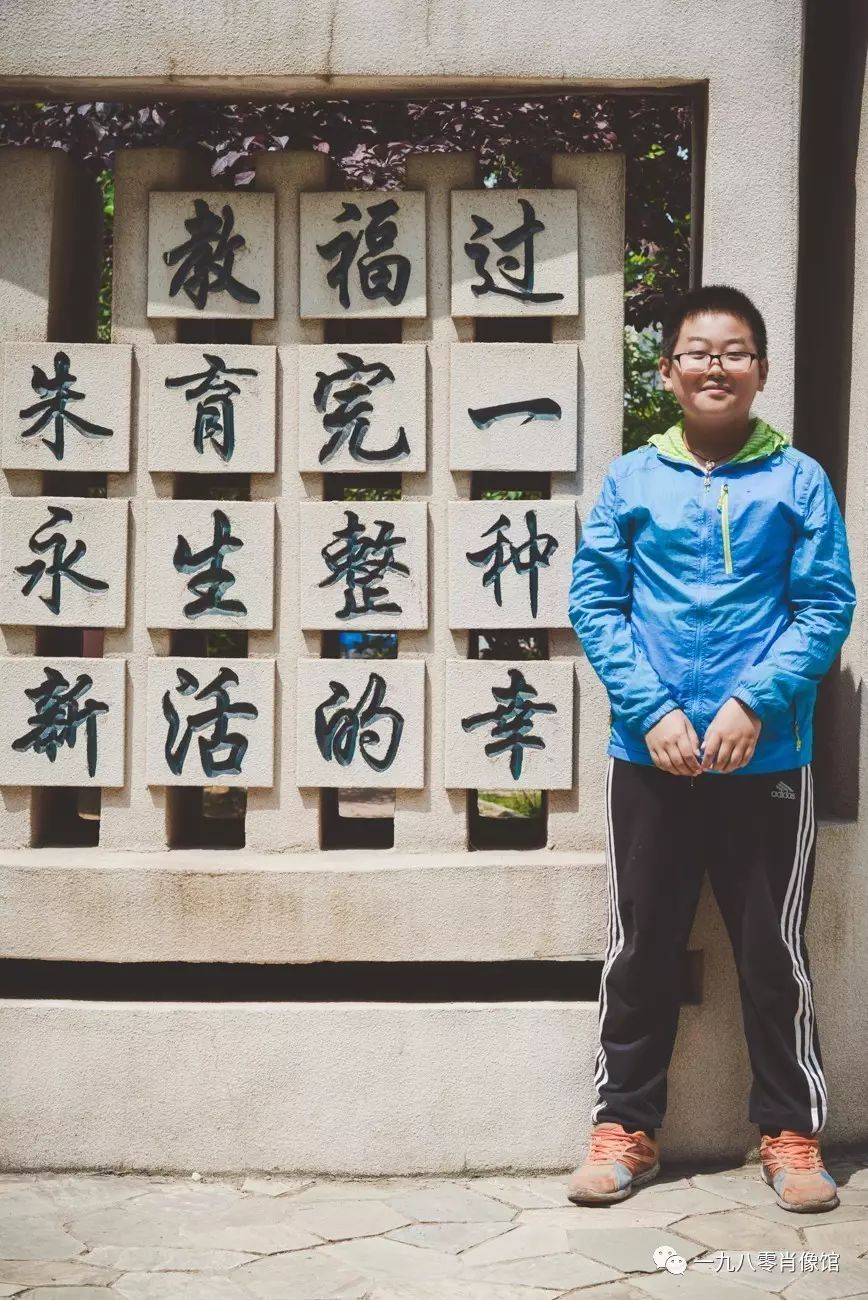 过一种幸
福完整的
教育生活
朱永新
adidas
一九八零肖像馆